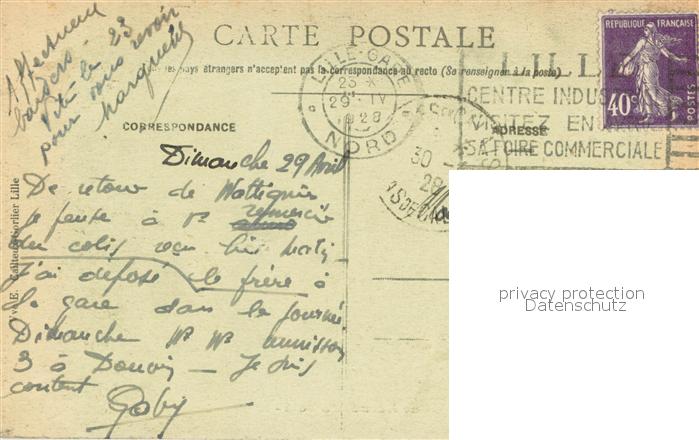 Affectueux
baisers -
Vite le 23
pour vous revoir
Marguerite
CARTE POSTALE
pays étrangers n'acceptent pas la correspondance au recto (Se renseigner à la poste)
RÉPUBLIQUE FRANÇAISE
40c
POSTES
LILLE-GARE
23
29 IV
1928
NORD
LILLE
CENTRE INDUS
VISITEZ EN
SA FOIRE COMMERCIALE
CORRESPONDANCE
ADRESSE
30
28
Dimanche 29 Avril
De retour de Wattignies
je pense à remercie
du colis reçu hier matin
J'ai déposé le frère à
la gare dans la journée
Dimanche
3 à Douai - Je suis
content
Gaby
Lille
privacy protection
Datenschutz